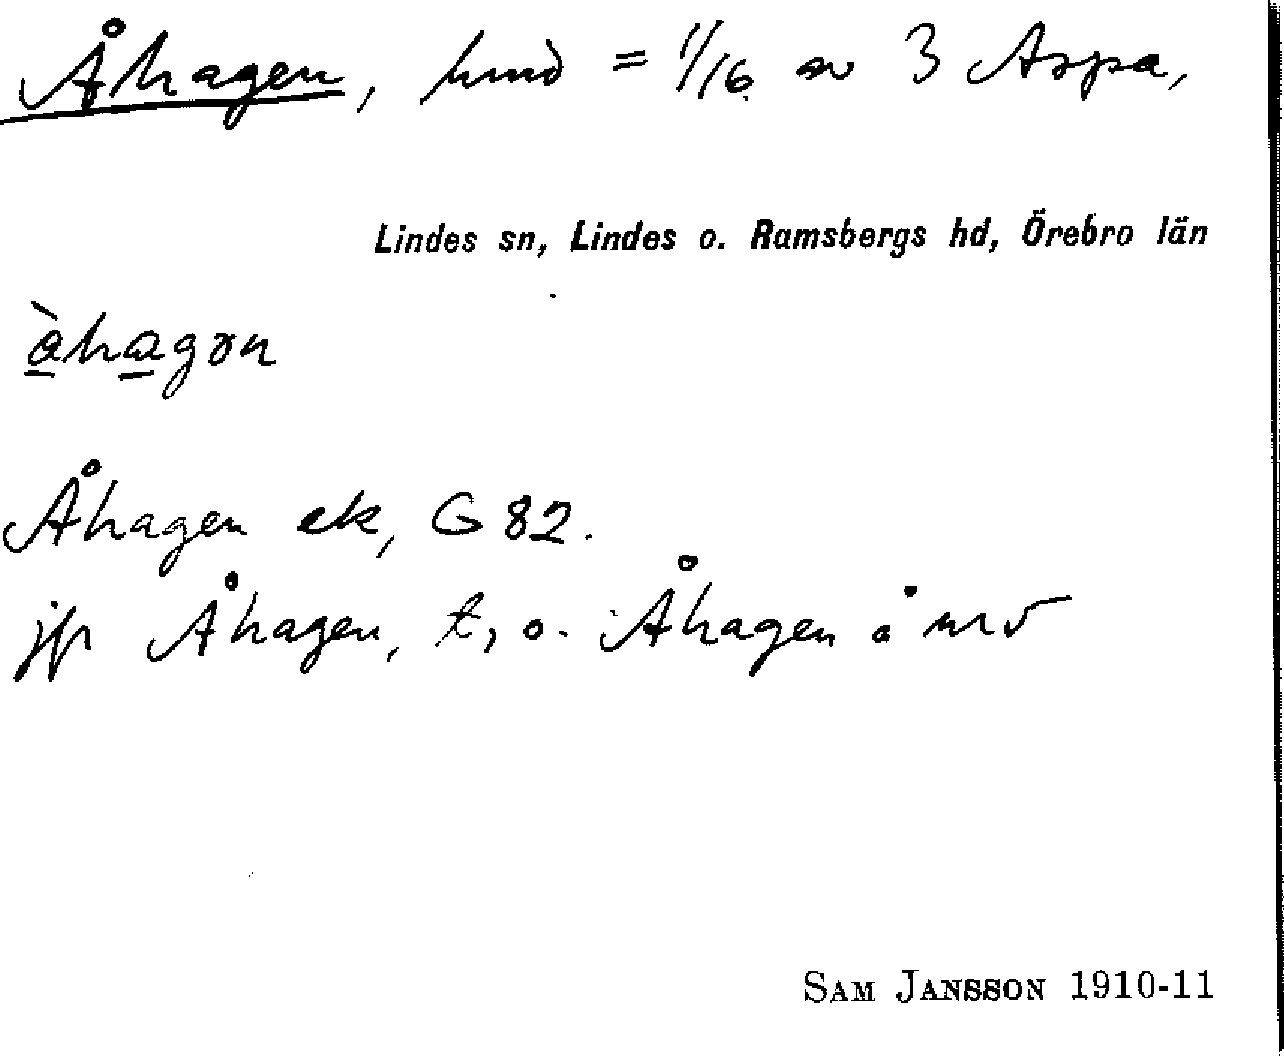 Åhagen, hmd = 1/16 av 3 Aspa,
Lindes sn, Lindes o. Ramsbergs hd, Örebro län
åhagən
Åhagen ek, G 82.
jfr Åhagen, t, o. Åhagen å
SAM JANSSON 1910-11